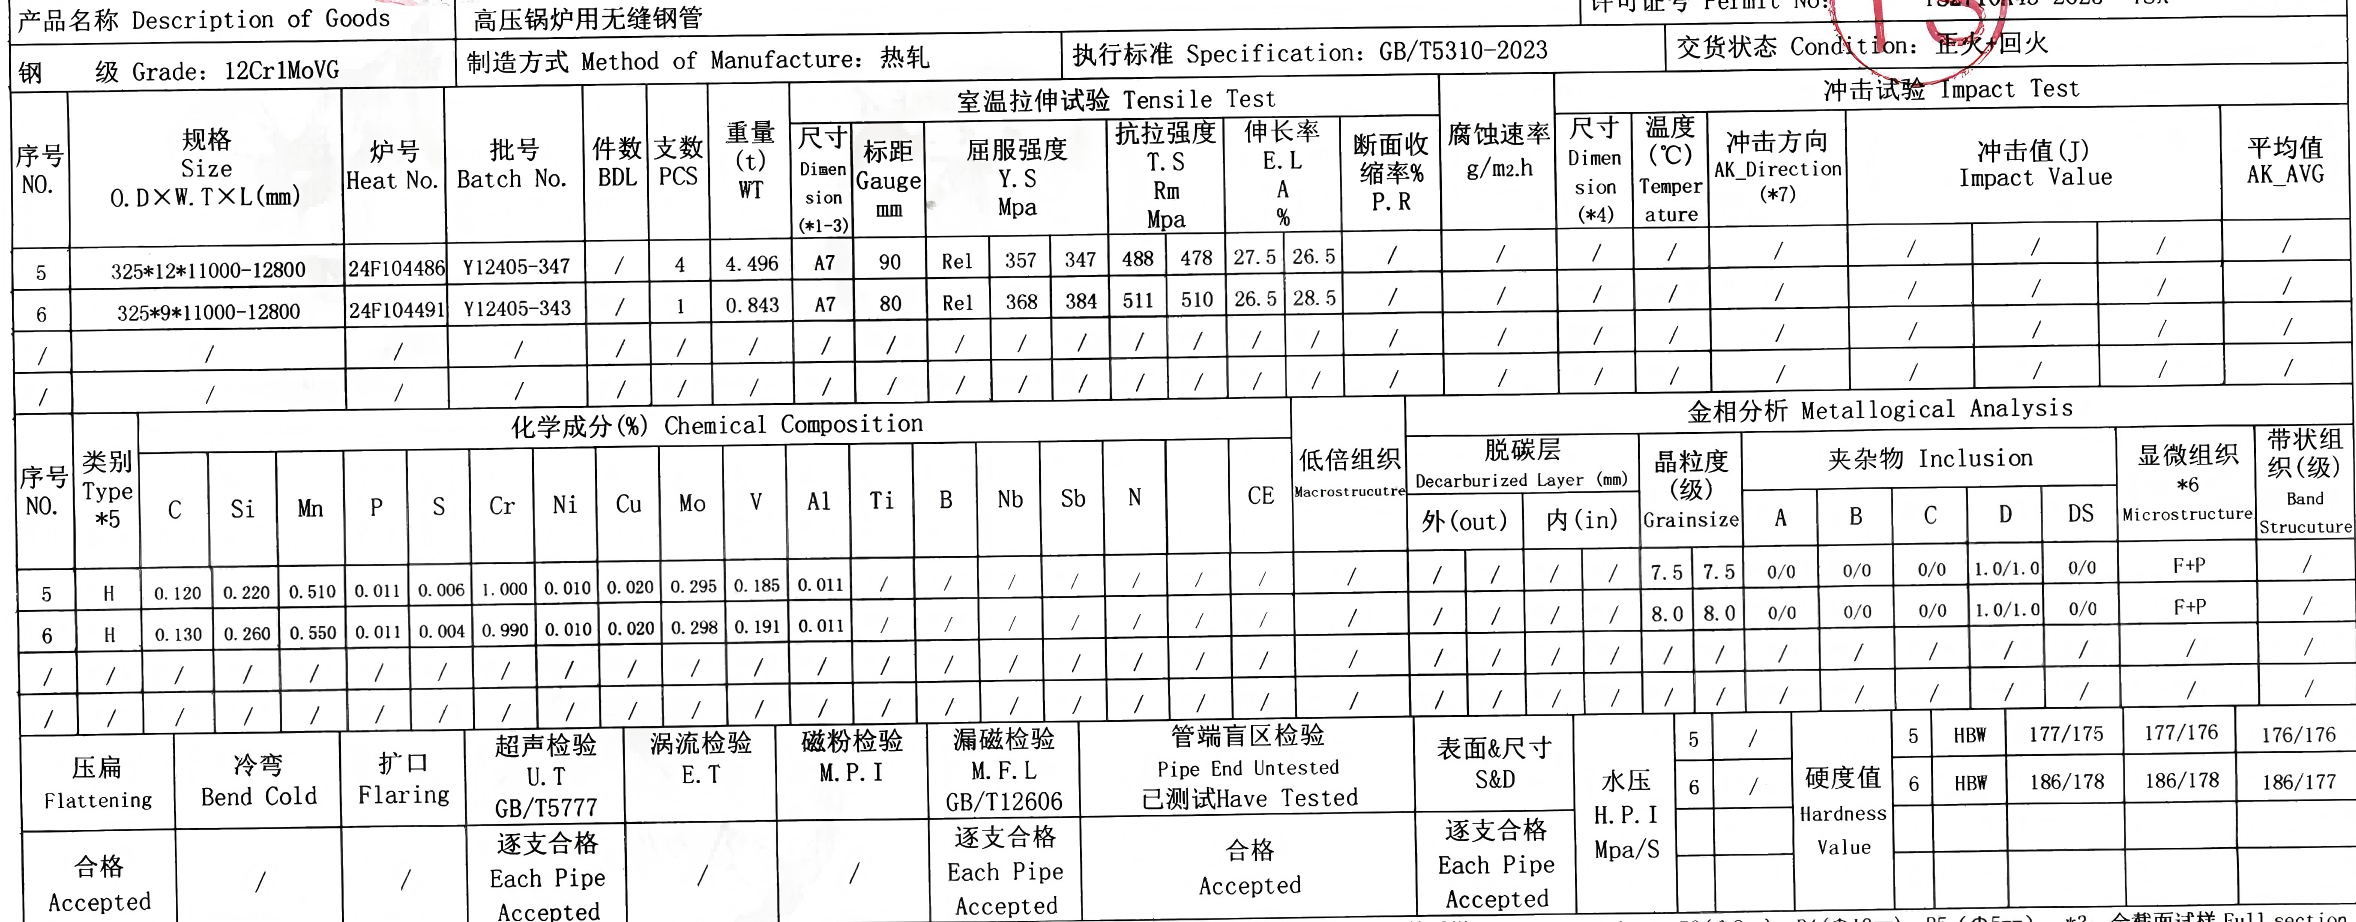 产品名称 Description of Goods 高压锅炉用无缝钢管 许可证号 Permit No:
钢 级 Grade: 12Cr1MoVG 制造方式 Method of Manufacture: 热轧 执行标准 Specification: GB/T5310-2023 交货状态 Condition: 正火+回火
室温拉伸试验 Tensile Test 冲击试验 Impact Test
序号 NO. 规格 Size O.D×W.T×L(mm) 炉号 Heat No. 批号 Batch No. 件数 BDL 支数 PCS 重量 (t) WT 尺寸 Dimen sion (*1-3) 标距 Gauge mm 屈服强度 Y.S Mpa 抗拉强度 T.S Rm Mpa 伸长率 E.L A % 断面收缩率% P.R 腐蚀速率 g/m2.h 尺寸 Dimen sion (*4) 温度 (℃) Temper ature 冲击方向 AK_Direction (*7) 冲击值(J) Impact Value 平均值 AK_AVG
5 325*12*11000-12800 24F104486 Y12405-347 / 4 4.496 A7 90 Rel 357 347 488 478 27.5 26.5 / / / / / / / / /
6 325*9*11000-12800 24F104491 Y12405-343 / 1 0.843 A7 80 Rel 368 384 511 510 26.5 28.5 / / / / / / / / /
/ / / / / / / / / / / / / / / / / / / / / / / / /
/ / / / / / / / / / / / / / / / / / / / / / / / /
化学成分(%) Chemical Composition 金相分析 Metallogical Analysis
序号 NO. 类别 Type *5 C Si Mn P S Cr Ni Cu Mo V Al Ti B Nb Sb N CE 低倍组织 Macrostrucutre 脱碳层 Decarburized Layer (mm) 外(out) 内(in) 晶粒度 (级) Grainsize 夹杂物 Inclusion A B C D DS 显微组织 *6 Microstructure 带状组织(级) Band Strucuture
5 H 0.120 0.220 0.510 0.011 0.006 1.000 0.010 0.020 0.295 0.185 0.011 / / / / / / / / / / / / 7.5 7.5 0/0 0/0 0/0 1.0/1.0 0/0 F+P /
6 H 0.130 0.260 0.550 0.011 0.004 0.990 0.010 0.020 0.298 0.191 0.011 / / / / / / / / / / / / 8.0 8.0 0/0 0/0 0/0 1.0/1.0 0/0 F+P /
/ / / / / / / / / / / / / / / / / / / / / / / / / / / / / / / / /
/ / / / / / / / / / / / / / / / / / / / / / / / / / / / / / / / /
压扁 Flattening 冷弯 Bend Cold 扩口 Flaring 超声检验 U.T GB/T5777 涡流检验 E.T 磁粉检验 M.P.I 漏磁检验 M.F.L GB/T12606 管端盲区检验 Pipe End Untested 已测试Have Tested 表面&尺寸 S&D 水压 H.P.I Mpa/S 硬度值 Hardness Value
5 / 5 HBW 177/175 177/176 176/176
6 / 6 HBW 186/178 186/178 186/177
合格 Accepted / / 逐支合格 Each Pipe Accepted / / 逐支合格 Each Pipe Accepted 合格 Accepted 逐支合格 Each Pipe Accepted